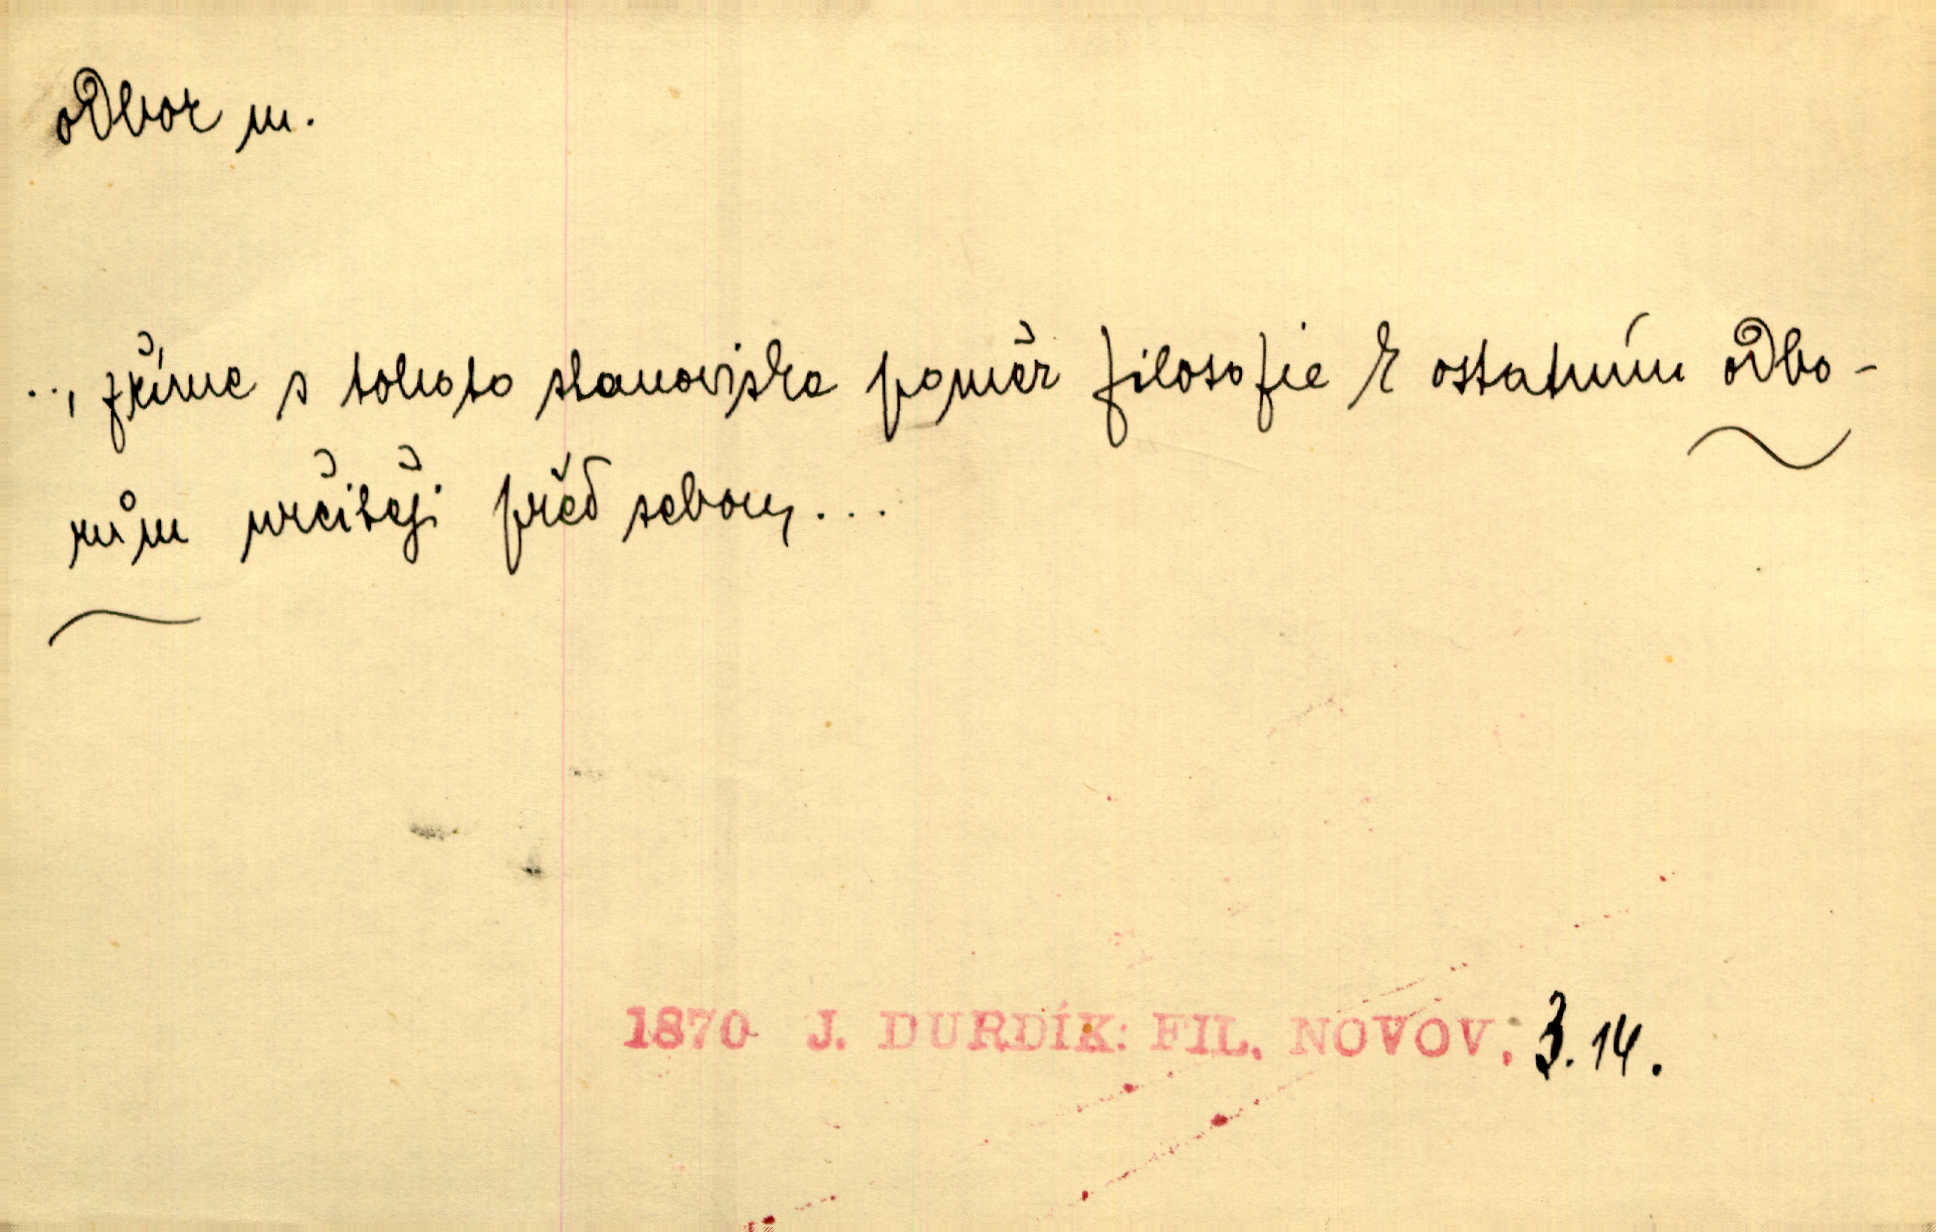 odbor m.
.., zříme s tohoto stanoviska poměr filosofie k ostatním odbo-
rům určitěji před sebou, ...
1870 J. DURDÍK: FIL. NOVOV. 3. 14.